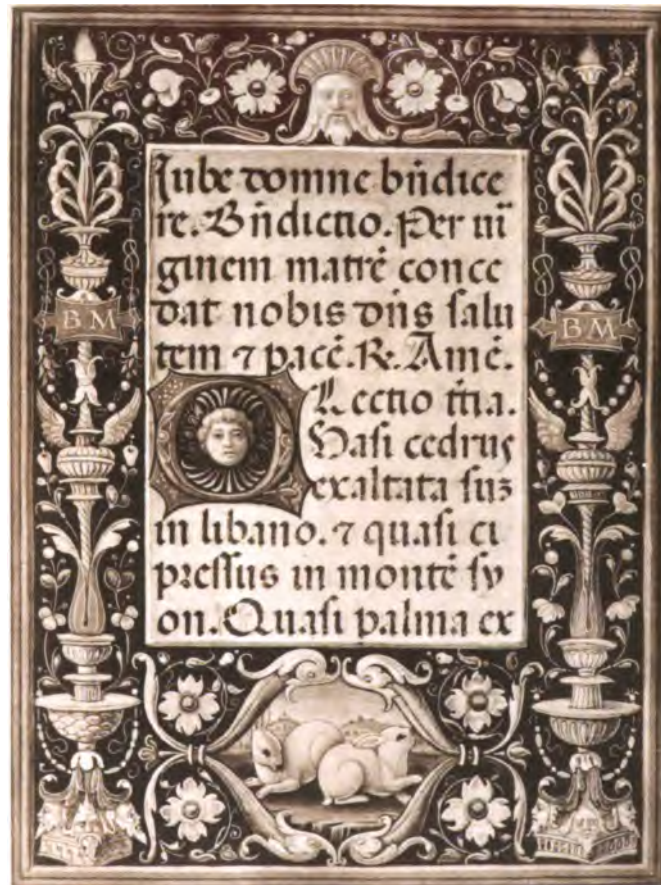 Jube domne bñdice
re. Bñdictio. Per uı̄
ginem matrē conce
dat nobis dn̄s salu
tem ⁊ pacē. ℞. Amē.
Lectio t̄ıa.
Quasi cedrus
exaltata suꝫ
in libano. ⁊ quasi ci
pressus in montē sy
on. Quasi palma ex
BM
BM